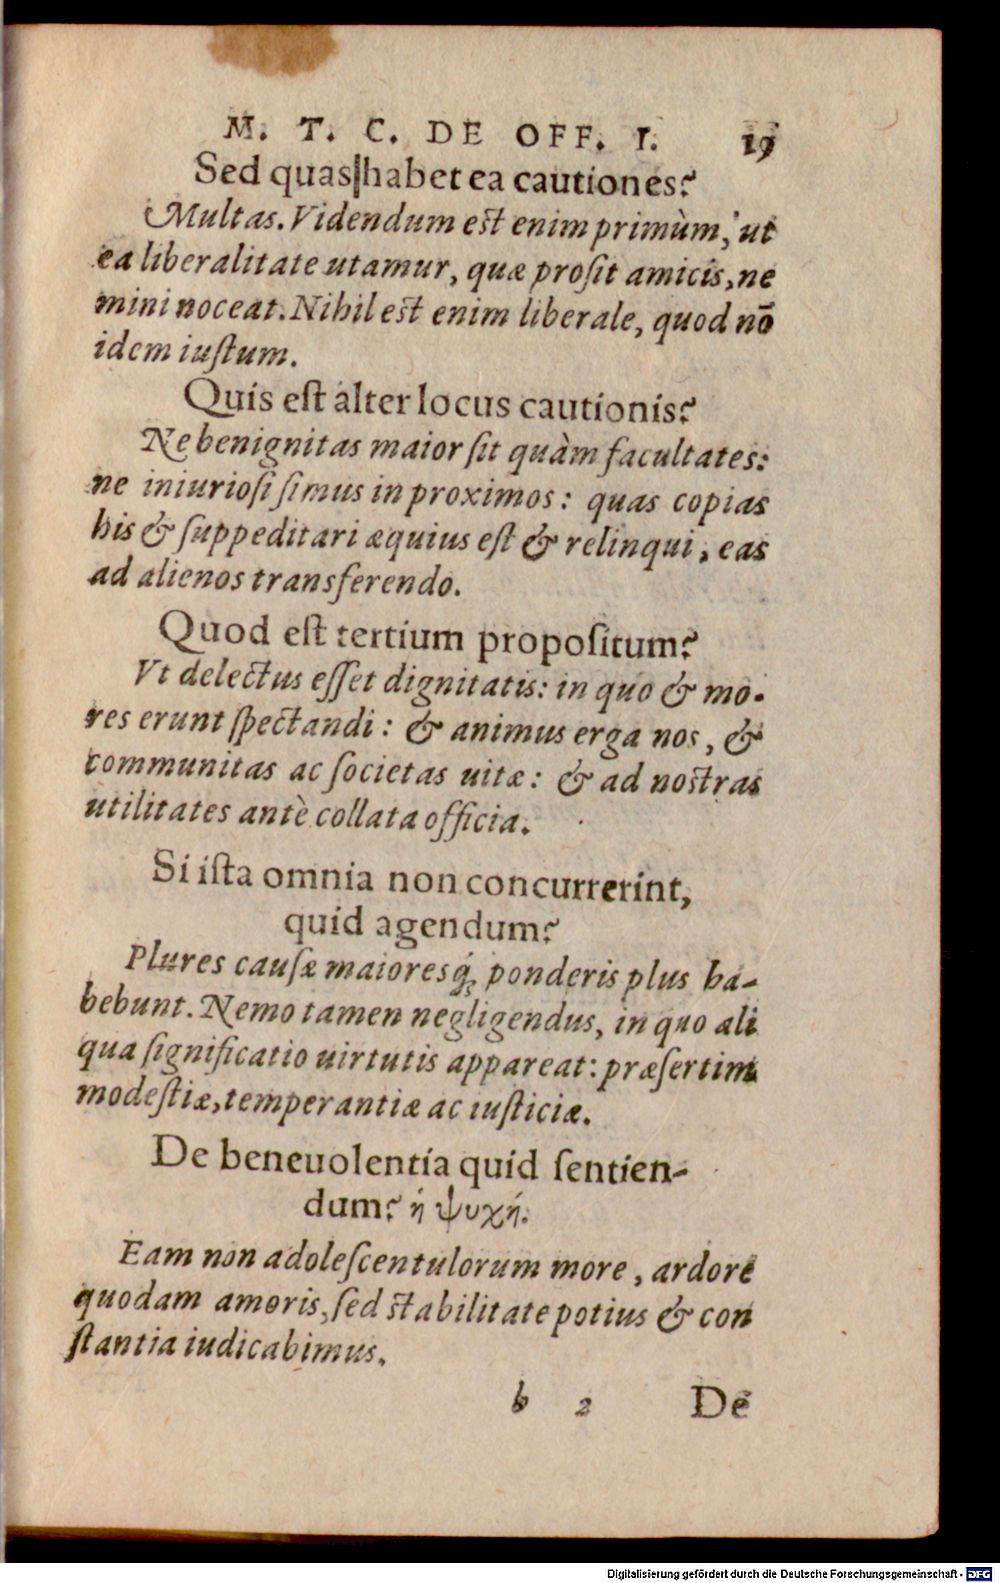 M. T. C. DE OFF. I. 19
Sed quas habet ea cautiones?
Multas. Videndum est enim primùm, ut
ea liberalitate utamur, quæ prosit amicis, ne
mini noceat. Nihil est enim liberale, quod nō
idem iustum.
Quis est alter locus cautionis?
Ne benignitas maior sit quàm facultates:
ne iniuriosi simus in proximos: quas copias
his & suppeditari æquius est & relinqui, eas
ad alienos transferendo.
Quod est tertium propositum?
Vt delectus esset dignitatis: in quo & mo-
res erunt spectandi: & animus erga nos, &
communitas ac societas uitæ: & ad nostras
utilitates antè collata officia.
Si ista omnia non concurrerint,
quid agendum?
Plures causæ maioresq́; ponderis plus ha-
bebunt. Nemo tamen negligendus, in quo ali
qua significatio uirtutis appareat: præsertim
modestiæ, temperantiæ ac iusticiæ.
De beneuolentia quid sentien-
dum? ἡ ψυχή.
Eam non adolescentulorum more, ardore
quodam amoris, sed stabilitate potius & con
stantia iudicabimus.
b 2 De
Digitalisierung gefördert durch die Deutsche Forschungsgemeinschaft - DFG